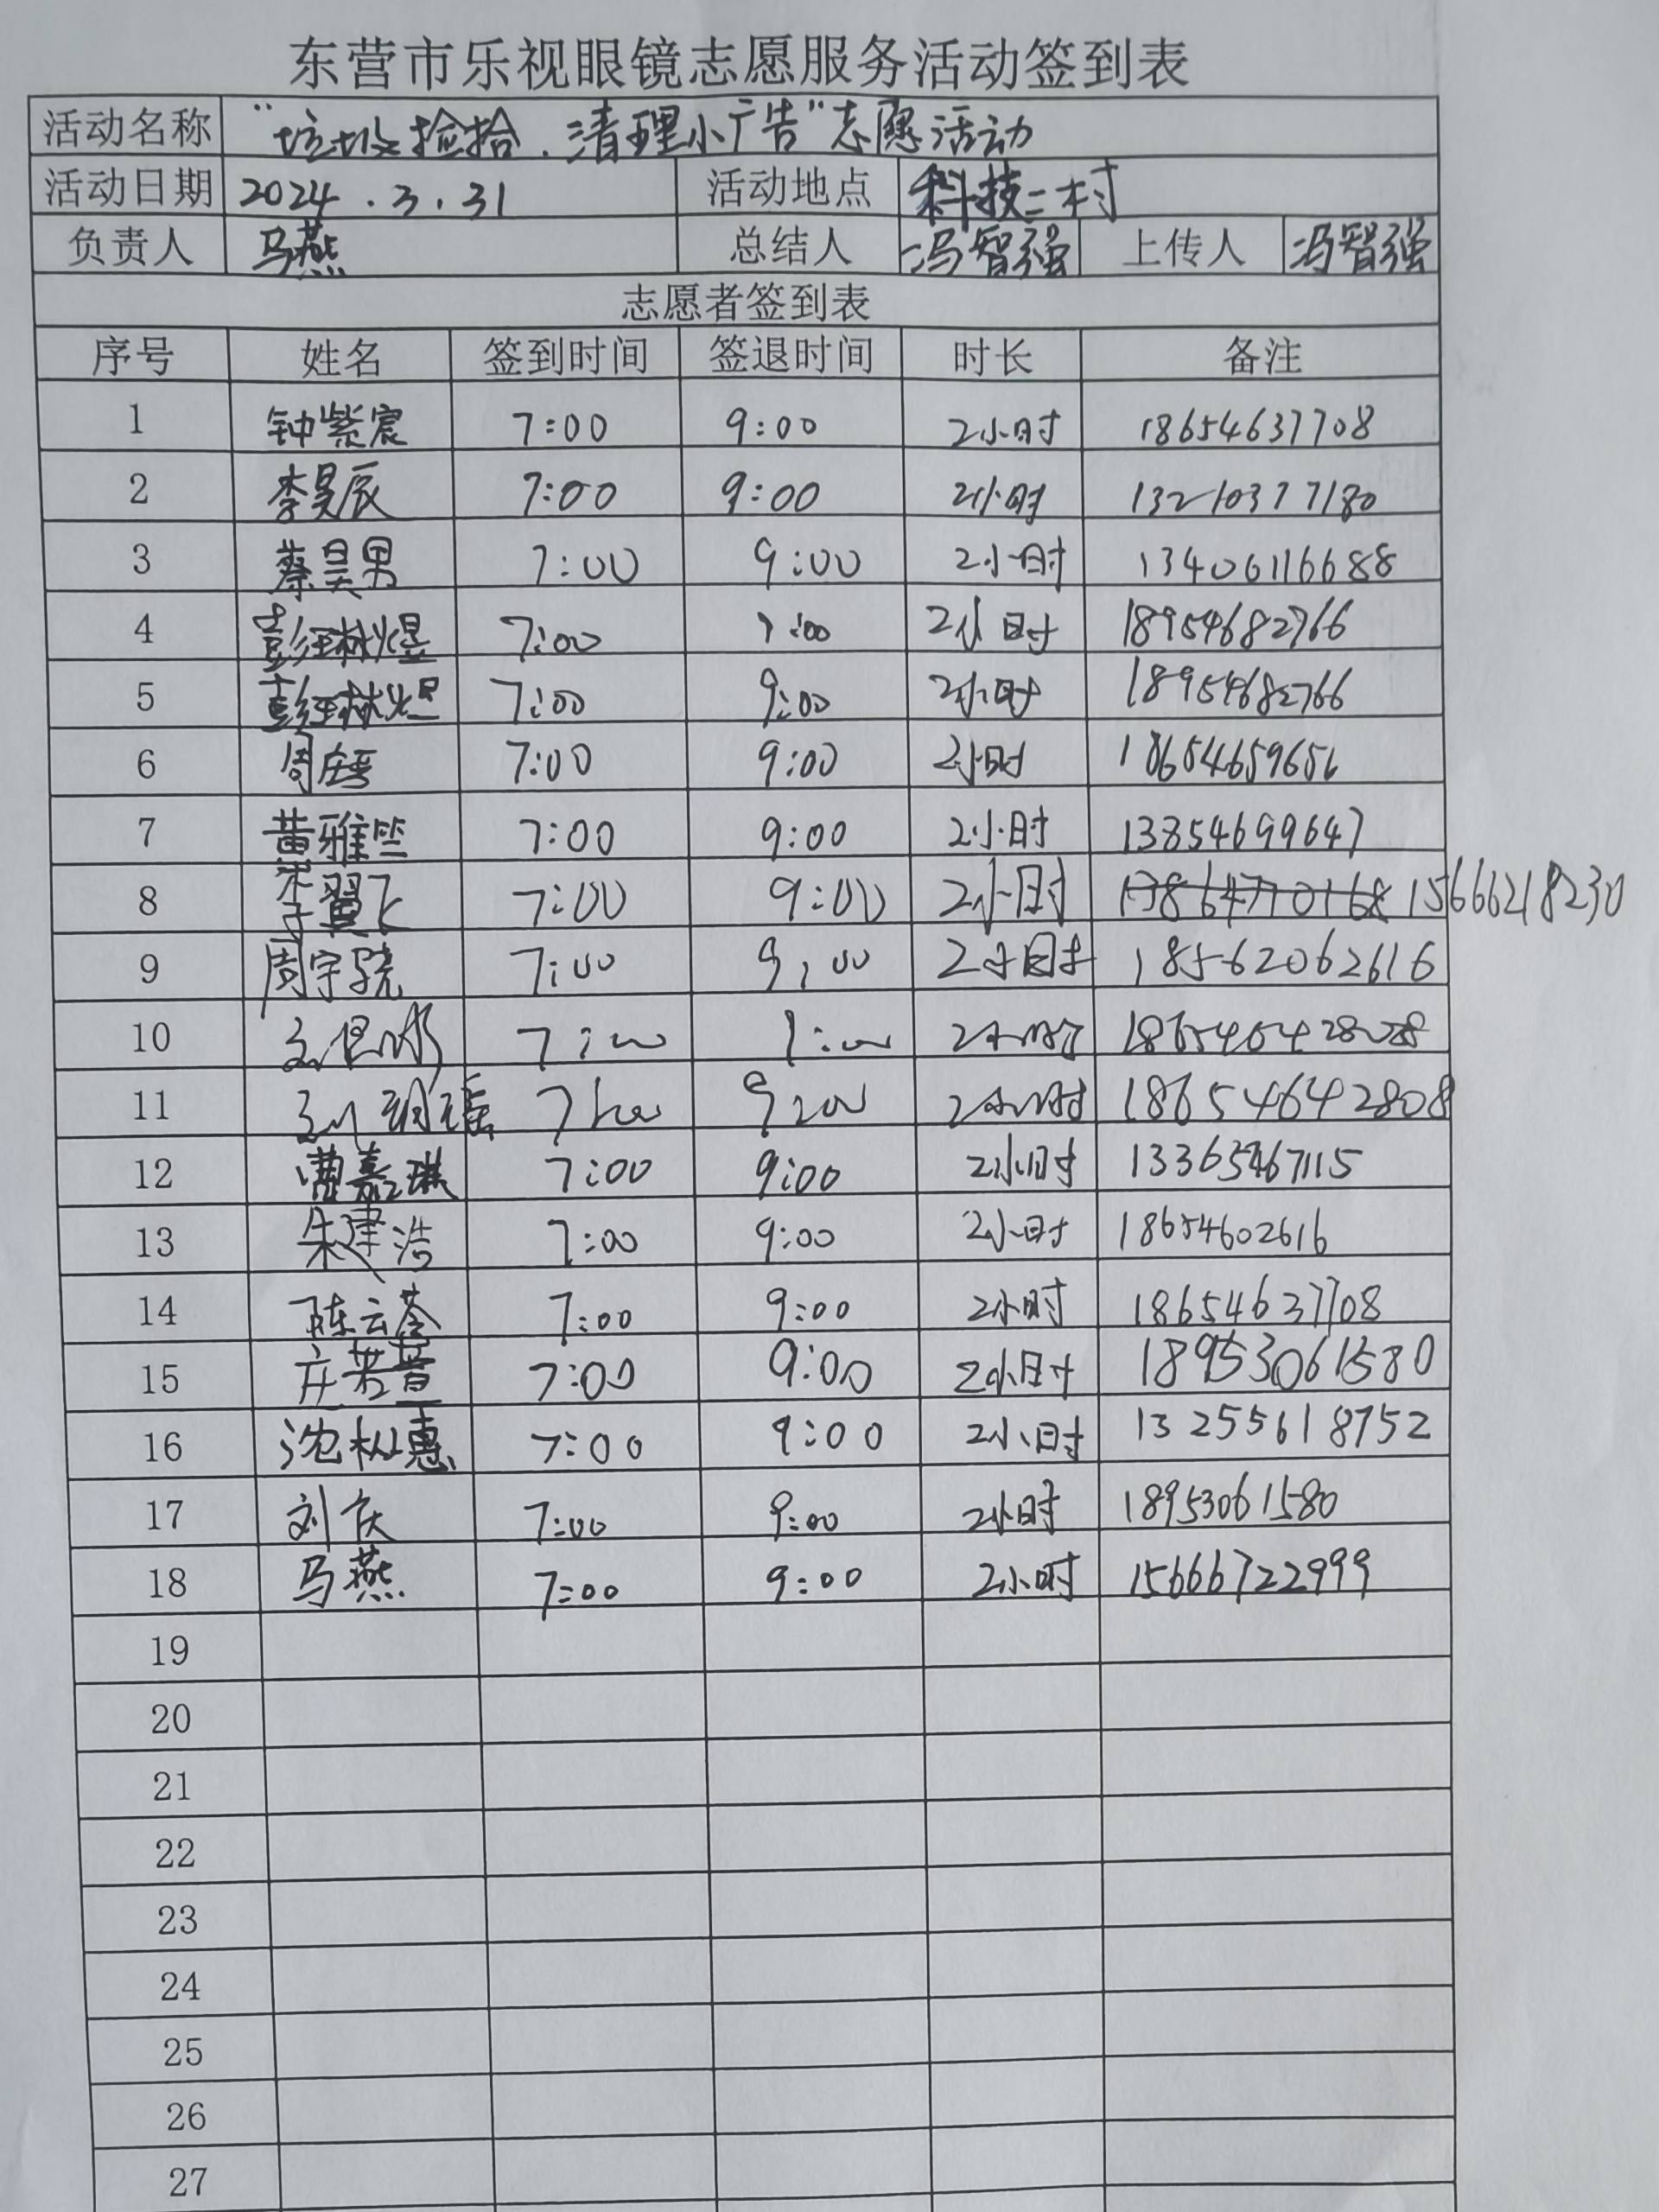 东营市乐视眼镜志愿服务活动签到表
活动名称 “垃圾捡拾.清理小广告”志愿活动
活动日期 2024.3.31 活动地点 科技二村
负责人 马燕 总结人 冯智强 上传人 冯智强
志愿者签到表
序号 姓名 签到时间 签退时间 时长 备注
1 钟紫宸 7:00 9:00 2小时 18654637708
2 李昊辰 7:00 9:00 2小时 13210377180
3 蔡昊男 7:00 9:00 2小时 13406116688
4 彭琳煜 7:00 9:00 2小时 18954682766
5 7:00 9:00 2小时 18954682766
6 7:00 9:00 2小时 18654659656
7 黄雅竺 7:00 9:00 2小时 13854699647
8 7:00 9:00 2小时 15666218230
9 周宇骁 7:00 9:00 2小时 18562062616
10 7:00 9:00 2小时
11 7:00 9:00 2小时 18654642808
12 曹嘉琪 7:00 9:00 2小时 13365467115
13 朱建浩 7:00 9:00 2小时 18654602616
14 陈云苓 7:00 9:00 2小时 18654637708
15 7:00 9:00 2小时 18953061580
16 沈松惠 7:00 9:00 2小时 13255618752
17 刘庆 7:00 9:00 2小时 18953061580
18 马燕 7:00 9:00 2小时 15666722999
19
20
21
22
23
24
25
26
27